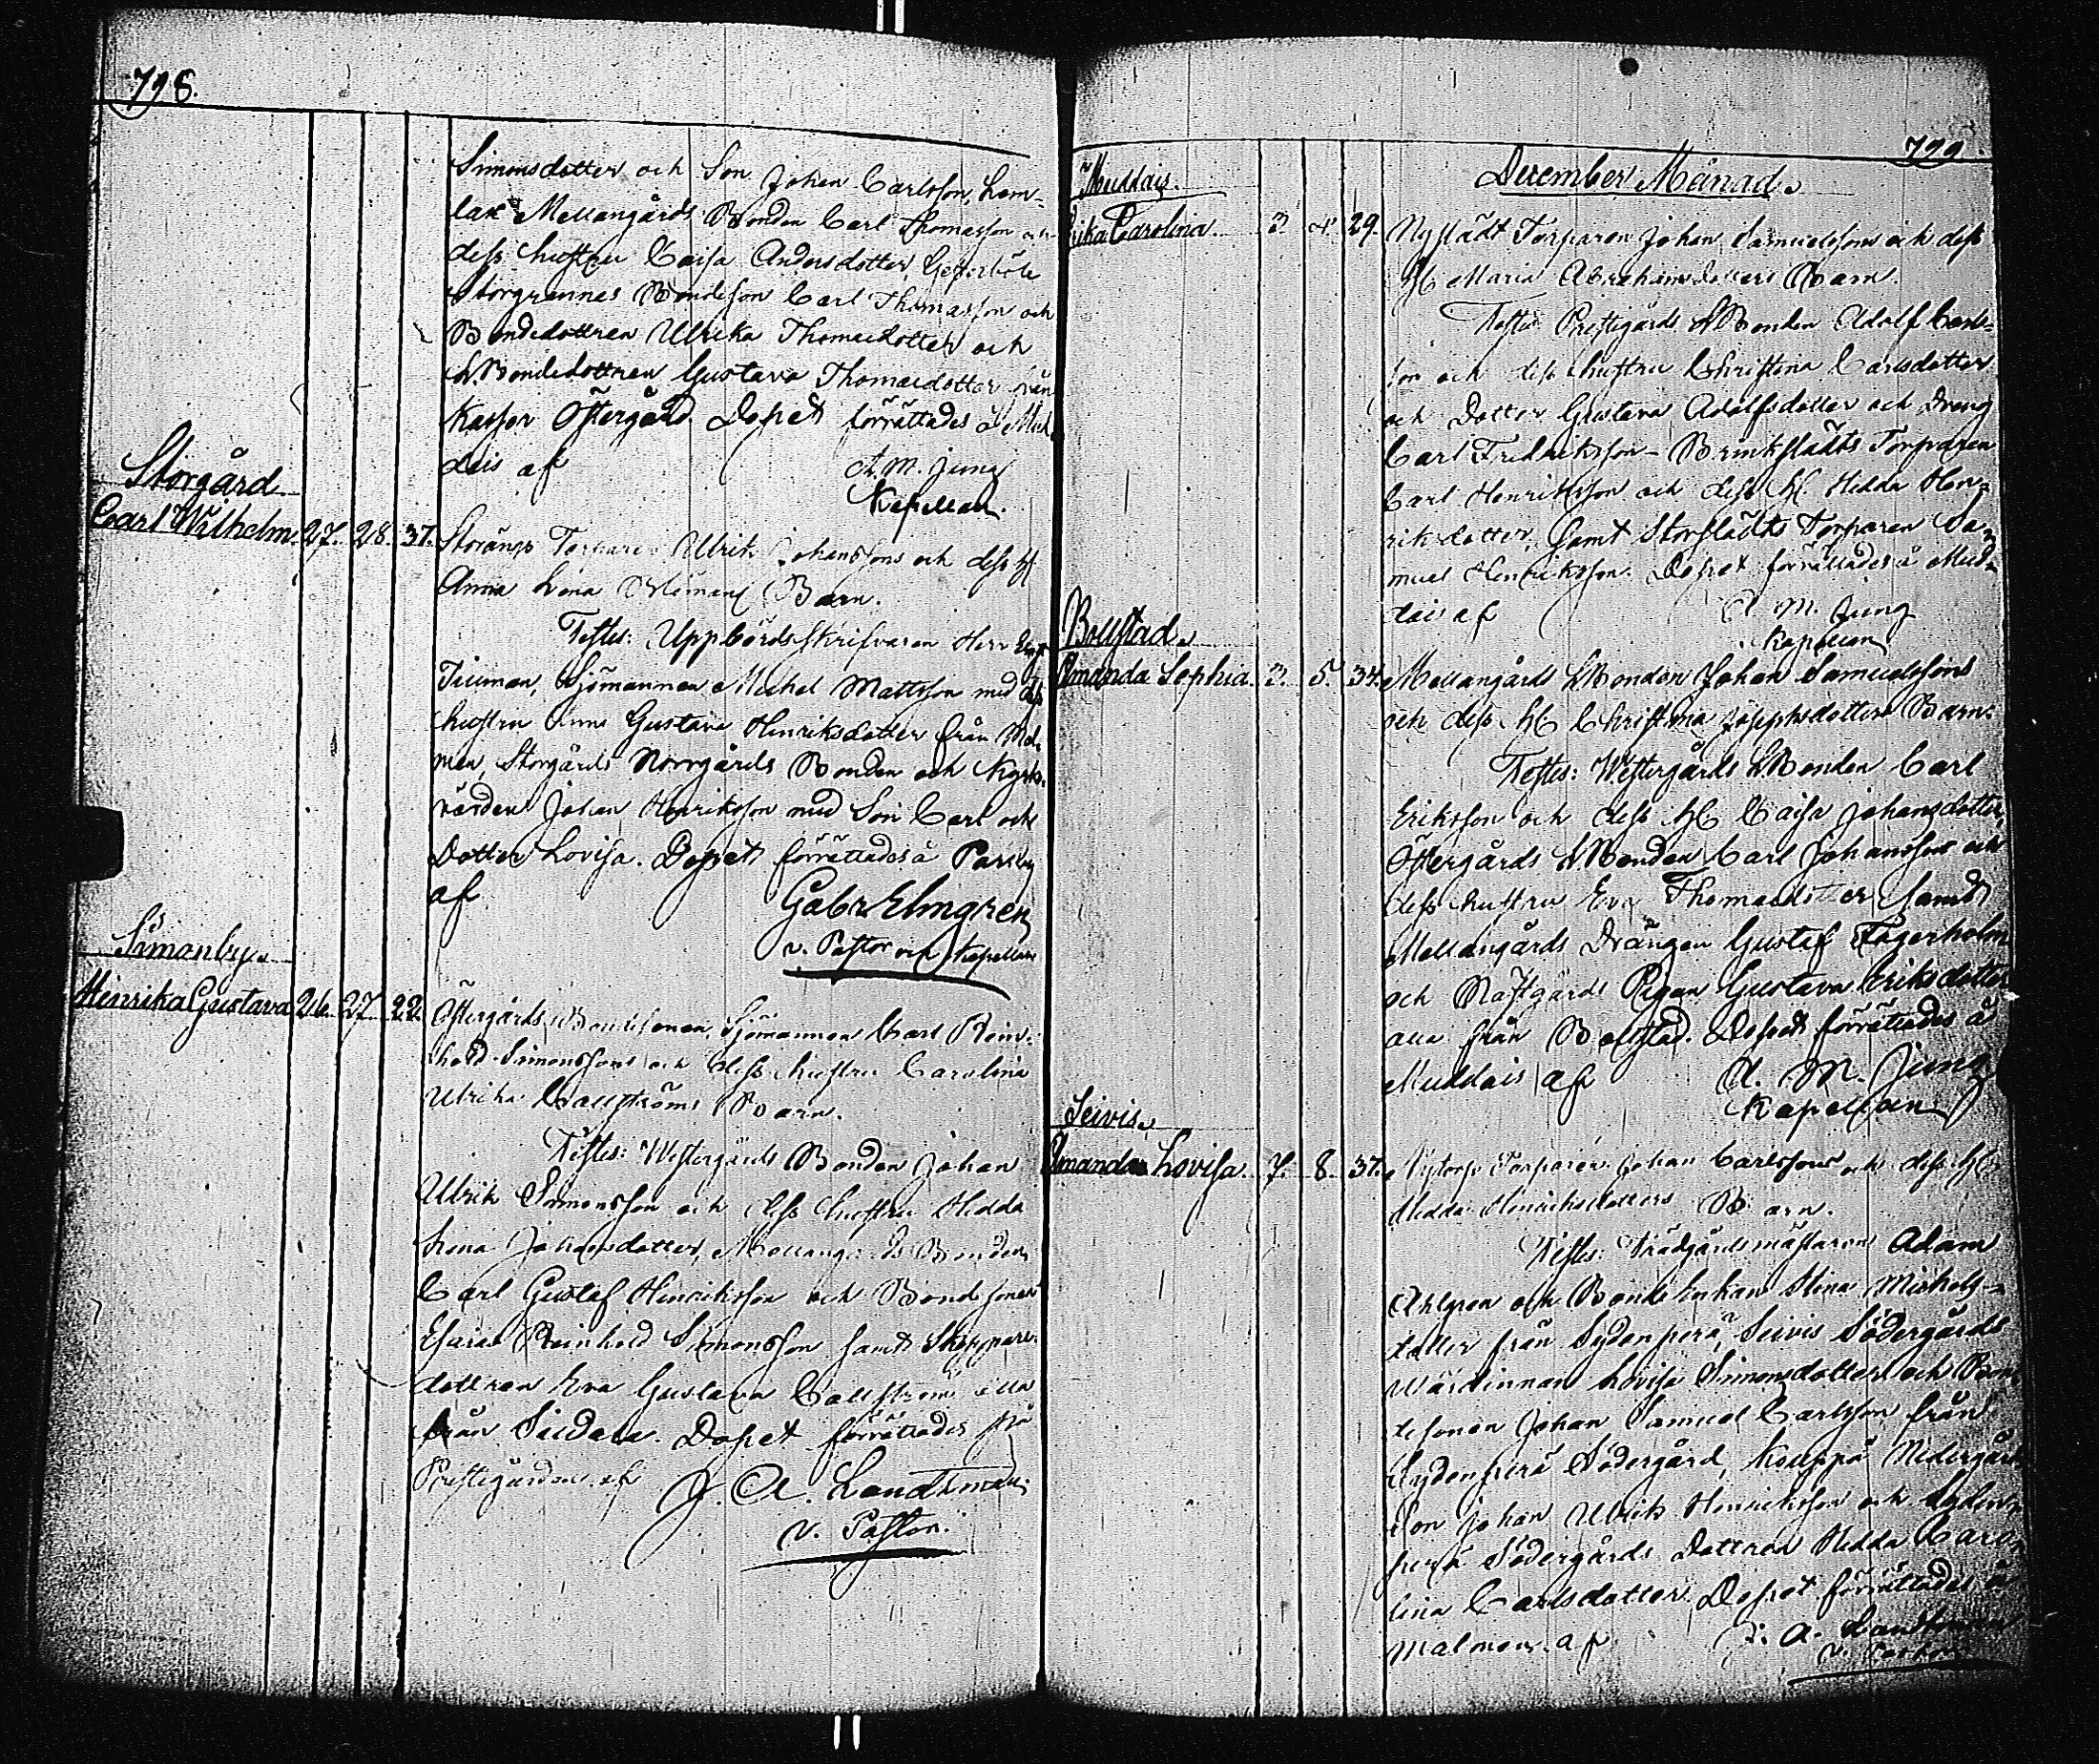 798.
Simonsdotter och Son Johan Carlsson, Lem-
lax Mellangårds Bonden Carl Thomasson och
dess hustru Caisa Andersdotter
Storgrannes Bondeson Carl Thomasson och
Bondedottren Ulrika Thomasdotter och
Bondedottren Gustava Thomasdotter från
Kassor Östergård. Dopet förrättades å Mud
dais af A. M. Jung
Kapellan.
Storgård
Carl Wilhelm. 27. 28. 37. Storängs Torparen Ulrik Johanssons och dess H
Anna Lena Barn.
Testes: Uppbördsskrifvaren Herr
Sjömannen Michel Mattsson med dess
hustru Anna Gustava Henriksdotter från Mal-
men, Storgårds Norrgårds Bonden och Kyrko-
värden Johan Henriksson med Son Carl och
Dotter Lovisa. Dopet förrättades å Parsby
af Gabr Elmgren
v. Pastor och Kapellan
Simonby.
Henrika Gustava 26. 27. 22. Östergårds Bondesonen, Sjömannen Carl Rein-
hold Simonssons och dess hustru Carolina
Ulrika Callströms Barn.
Testes: Westergårds Bonden Johan
Ulrik Simonsson och dess hustru Hedda
Johansdotter, Mellangårds Bonden
Carl Gustaf Henriksson och Bondesonen
Esaias Reinhold Simonsson samt Skeppare
dottren Eva Gustava Callström alla
från Dopet förrättades på
Prestgården af J. A. Landtman
v. Pastor.
799.
December Månad.
Muddais.
Erika Carolina. 3. 4. 29. Nystädt Torparen Johan Samuelssons och dess
H Maria Abrahamsdotters Barn.
Testes: Prestgårds Bonden Adolf Carls-
son och dess hustru Christina Carlsdotter
och Dotter Gustava Adolfsdotter och Dreng
Carl Fredriksson Torparen
Carl Henriksson och dess H. Hedda Hen-
riksdotter, samt Torparen Sa-
muel Henriksson. Dopet förrättades å Mud-
dais af A. M. Jung
Kapellan
Bollstad.
Amanda Sophia. 3. 5. 34. Mellangårds Bonden Johan Samuelssons
och dess H Christina Josephsdotters Barn.
Testes: Westergårds Bonden Carl
Eriksson och dess H Caisa Johansdotter,
Östergårds Bonden Carl Johansson och
dess hustru Eva Thomasdotter samt
Mellangårds Drängen Gustaf Fagerholm
och Pigan Gustava Eriksdotter
alla från Bollstad. Dopet förrättades å
Muddais af A. M. Jung
Kapellan
Seivis.
Amanda Lovisa. 7. 8. 37. Nytorps Torparen Johan Carlssons och dess H
Hedda Henriksdotters Barn.
Testes: Trädgårdsmästaren Adam
Ahlgren och Bonde Enkan Stina Michels-
dotter från Sydenperä, Seivis Södergårds
Wärdinnan Lovisa Simonsdotter och Bon
desonen Johan Samuel Carlsson från
Sydenperä Södergård, Nedergårds
Son Johan Ulrik Henriksson och Syden-
perä Södergårds Dottren Hedda Caro-
lina Carlsdotter. Dopet förrättades å
Malmen. af J. A. Landtman
v. Pastor